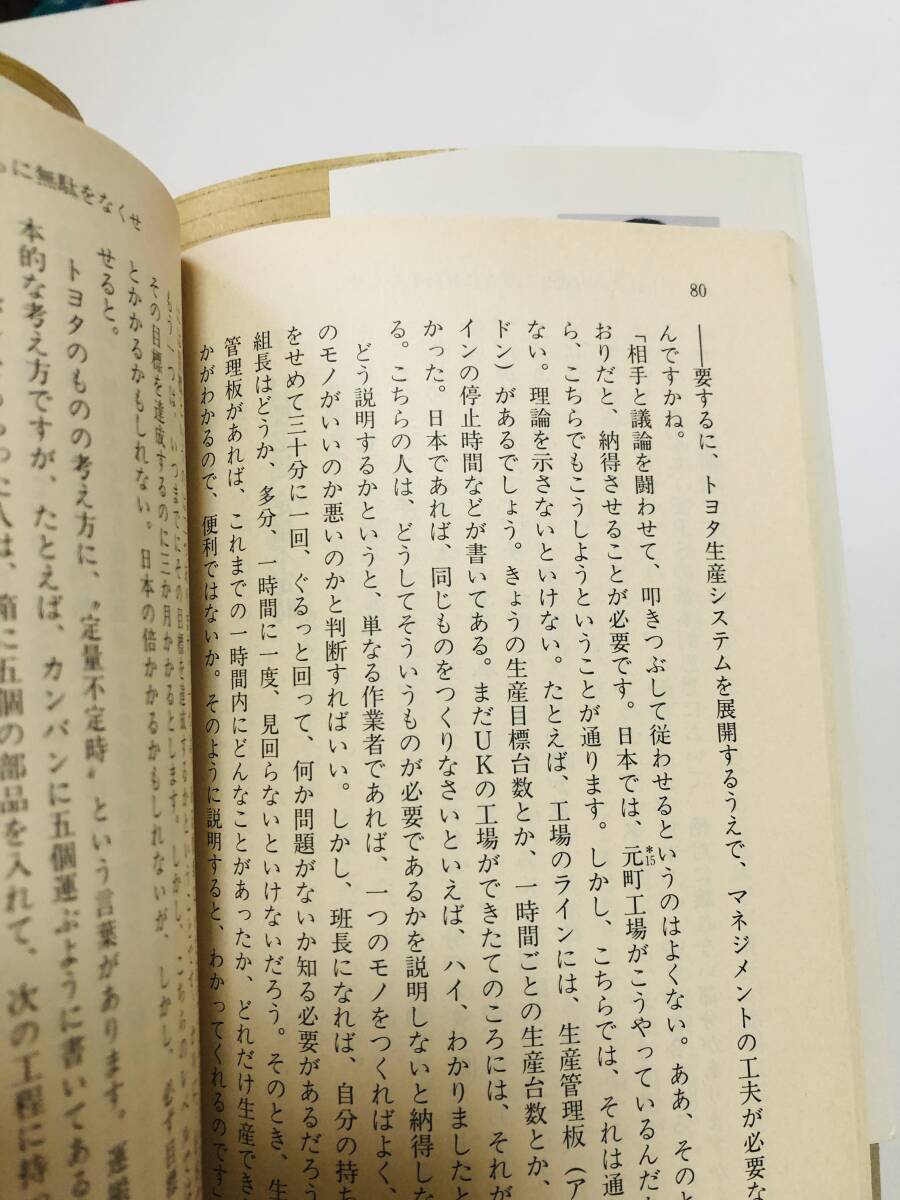 80
――要するに、トヨタ生産システムを展開するうえで、マネジメントの工夫が必要な
んですかね。
「相手と議論を闘わせて、叩きつぶして従わせるというのはよくない。ああ、そのと
おりだと、納得させることが必要です。日本では、元町工場がこうやっているんだか
*15
ら、こちらでもこうしようということが通ります。しかし、こちらでは、それは通
ない。理論を示さないといけない。たとえば、工場のラインには、生産管理板（ア
ドン）があるでしょう。きょうの生産目標台数とか、一時間ごとの生産台数とか、
インの停止時間などが書いてある。まだUKの工場ができたてのころには、それが
かった。日本であれば、同じものをつくりなさいといえば、ハイ、わかりましたと
る。こちらの人は、どうしてそういうものが必要であるかを説明しないと納得しな
どう説明するかというと、単なる作業者であれば、一つのモノをつくればよく、
のモノがいいのか悪いのかと判断すればいい。しかし、班長になれば、自分の持ち
をせめて三十分に一回、ぐるっと回って、何か問題がないか知る必要があるだろう
組長はどうか、多分、一時間に一度、見回らないといけないだろう。そのとき、生
管理板があれば、これまでの一時間内にどんなことがあったか、どれだけ生産でき
かがわかるので、便利ではないか。そのように説明すると、わかってくれるのですご
に無駄をなくせ
もう一つは、いつまでにその目標を達成するか
その目標を達成するのに三か月かかるとします。しかし、こちらの
とかかるかもしれない。日本の倍かかるかもしれないが、しかし、必ず目標
せると。
トヨタのものの考え方に、〝定量不定時〟という言葉があります。運
本的な考え方ですが、たとえば、カンバンに五個運ぶように書いてある
人は、箱に五個の部品を入れて、次の工程に持